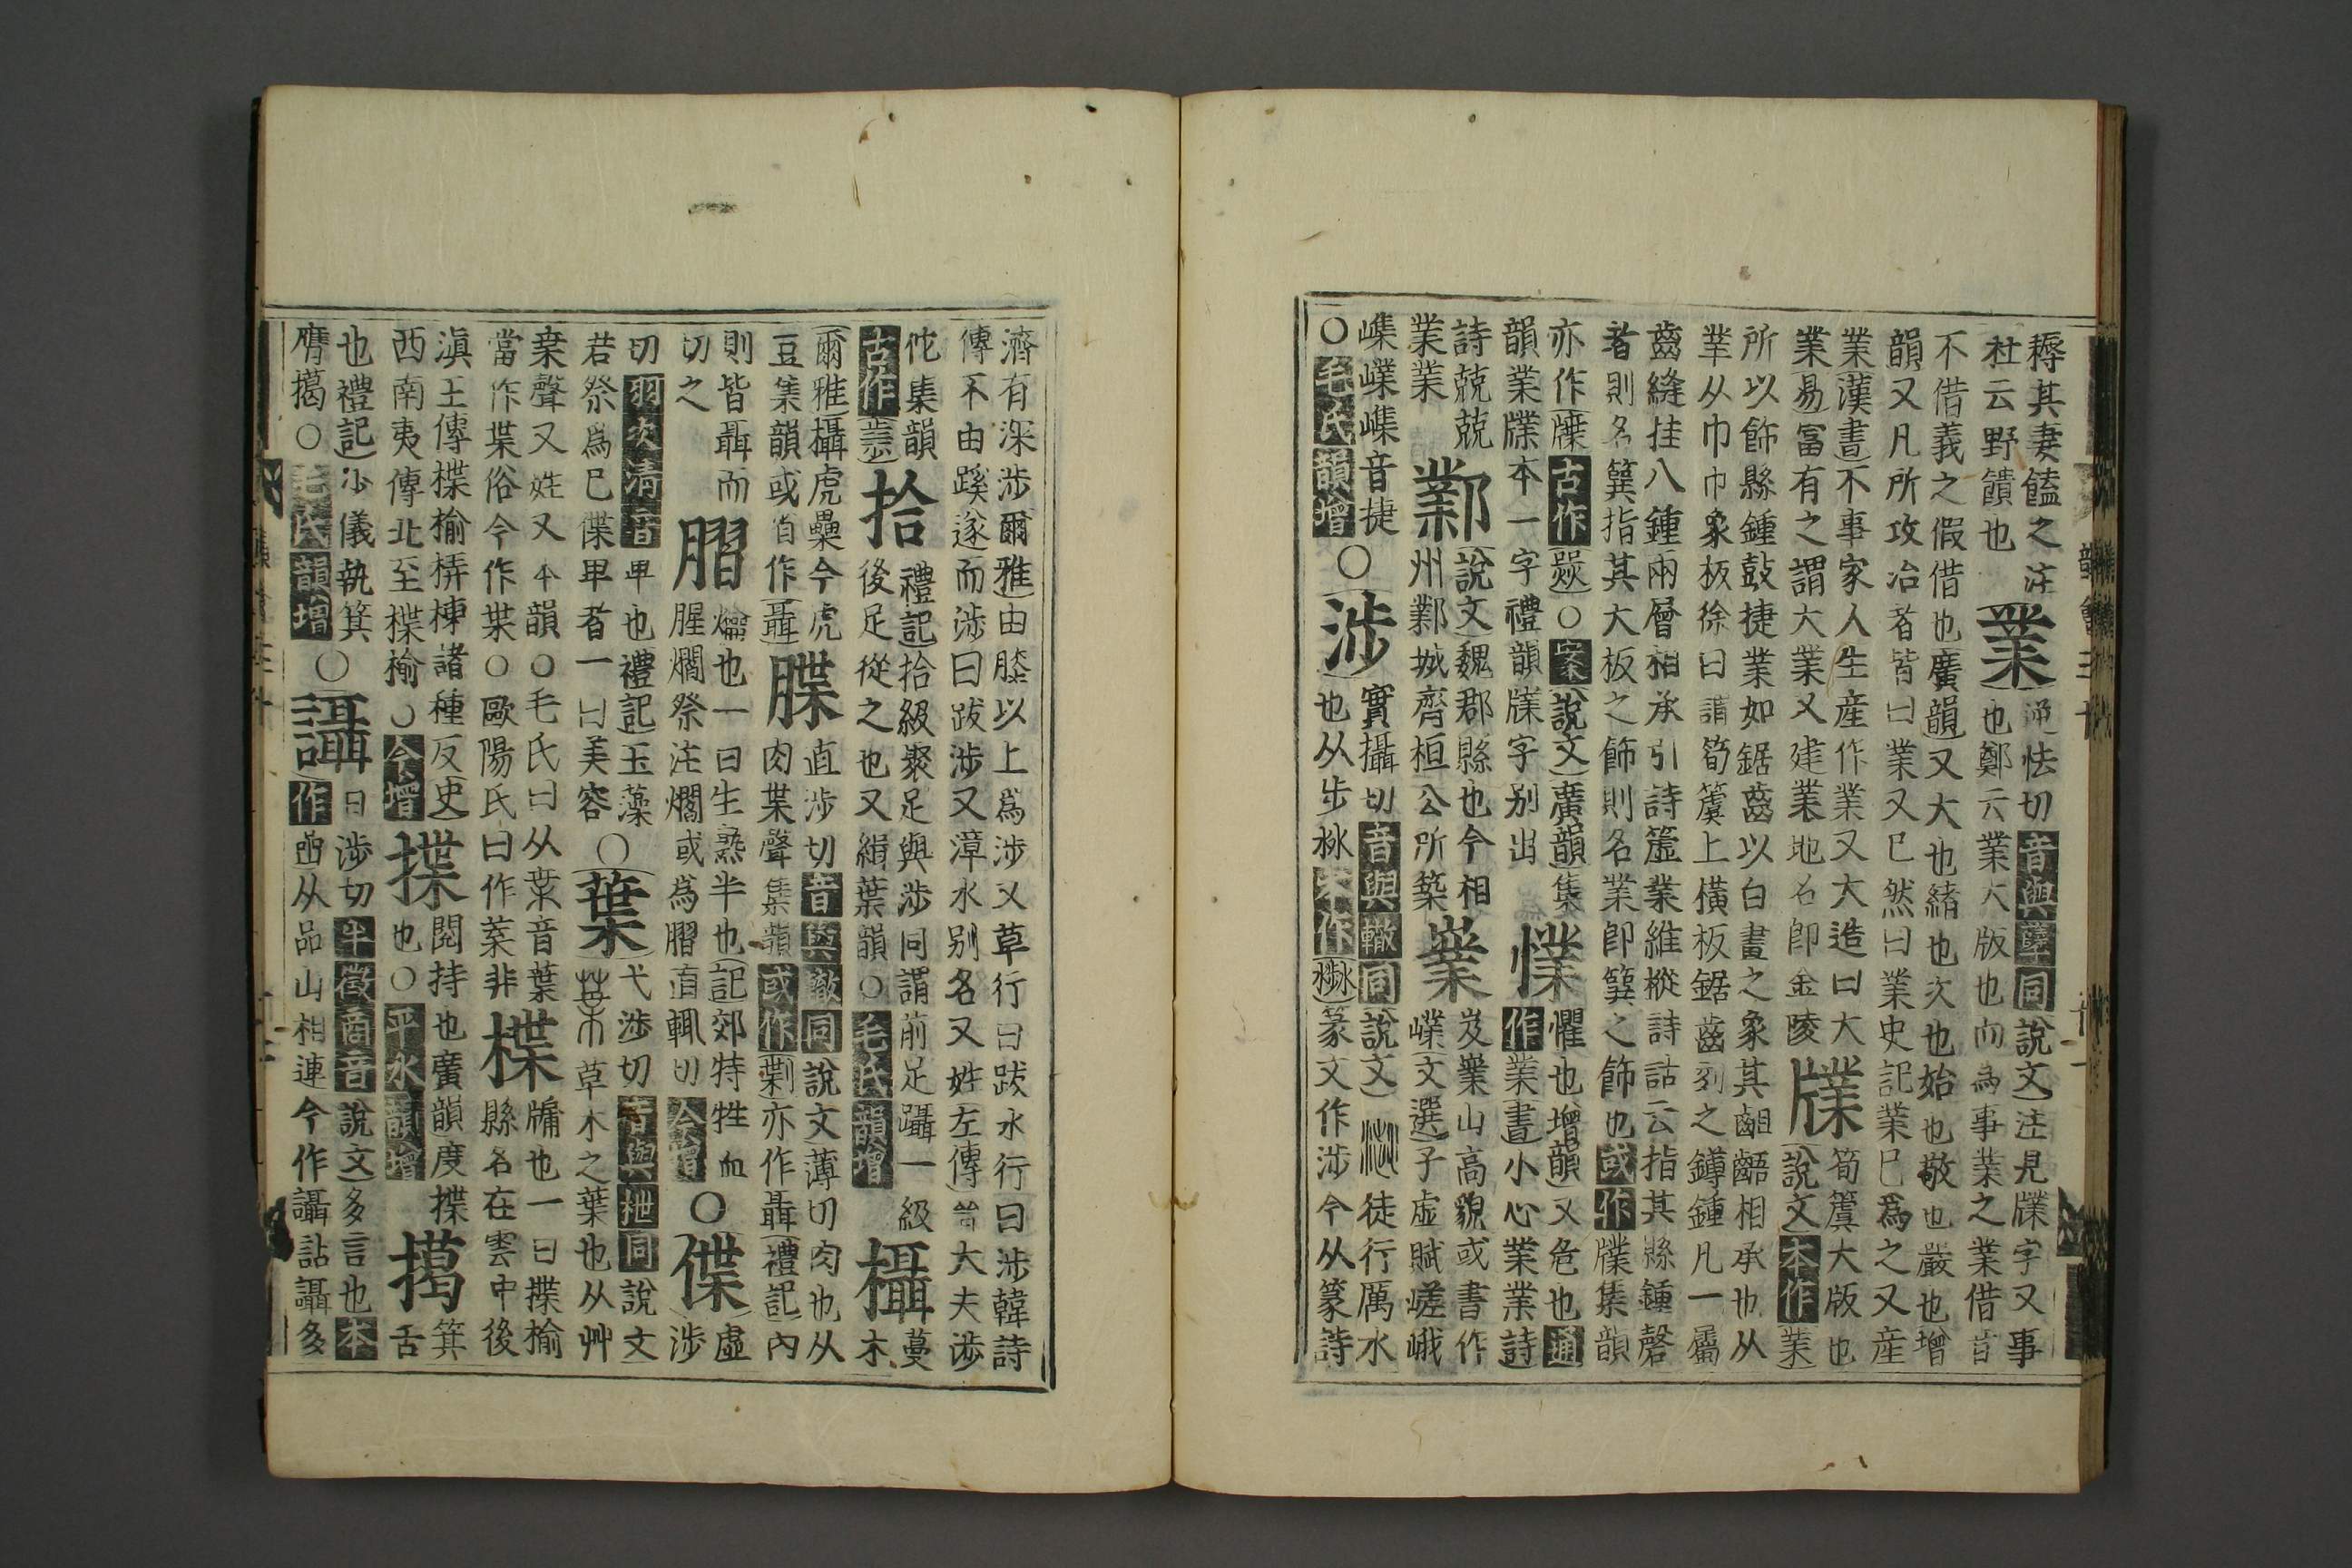 耨其妻饁之注
杜云野饋也
業
逆怯切音與孽同說文注見㸣字又事
也鄭云業大版也而為事業之業借音
不借義之假借也廣韻又大也緒也次也始也敬也嚴也增
韻又凡所攻冶者皆曰業又已然曰業史記業已爲之又産
業漢書不事家人生産作業又大造曰大
業易富有之謂大業又建業地名即金陵
㸣
筍簴大版也
說文本作業
所以飾縣鍾鼓捷業如鋸齒以白畫之象其鉏鋙相承也从
丵从巾巾象板徐曰謂筍簴上橫板鋸齒刻之鏄鍾凡一屬
齒縫挂八鍾兩層相承引詩虡業維樅詩詁云指其縣鍾磬
者則名簨指其大板之飾則名業即簨之飾也或作㸣集韻
亦作古作○案說文廣韻集
韻業㸣本一字禮韻㸣字別出
㦺
懼也增韻又危也通
作業書小心業業詩
詩兢兢
業業
鄴
說文魏郡縣也今相
州鄴城齊桓公所築
嶪
岌嶪山高貌或書作
嶫文選子虛賦嵯峨
嶕嶫嶕音捷
○毛氏韻增
○涉
實攝切音與轍同說文徒行厲水
也从步沝本作篆文作涉今从篆詩
濟有深涉爾雅由膝以上爲涉又草行曰跋水行曰涉韓詩
傳不由蹊遂而涉曰跋涉又漳水別名又姓左傳晉大夫涉
佗集韻
古作
拾
禮記拾級聚足與涉同謂前足躡一級
後足從之也又緝葉韻○毛氏韻增
欇
蔓
木
爾雅欇虎櫐今虎
豆集韻或省作聶
牒
直涉切音與轍同說文薄切肉也从
肉枼聲集韻或作剿亦作聶禮記內
則皆聶而
切之
膶
爚也一曰生熟半也記郊特牲血
腥爓祭注爓或爲直輒切今增
○偞
虛
涉
切羽次清音卑也禮記玉藻
若祭爲已偞卑者一曰美容
○葉
弋涉切音與枻同說文
草木之葉也从艸
枼聲又姓又本韻○毛氏曰从枼音葉牖也一曰揲楡
當作枼俗今作葉○歐陽氏曰作葉非
楪
縣名在雲中後
滇王傳楪楡桥棟諸種反史
西南夷傳北至楪楡○今增
揲
閱持也廣韻度揲
也○平水韻增
擖
箕
舌
也禮記少儀執箕
膺擖○毛氏韻增
○讘
日涉切半徵商音說文多言也本
作嵒从品山相連今作讘詀讘多